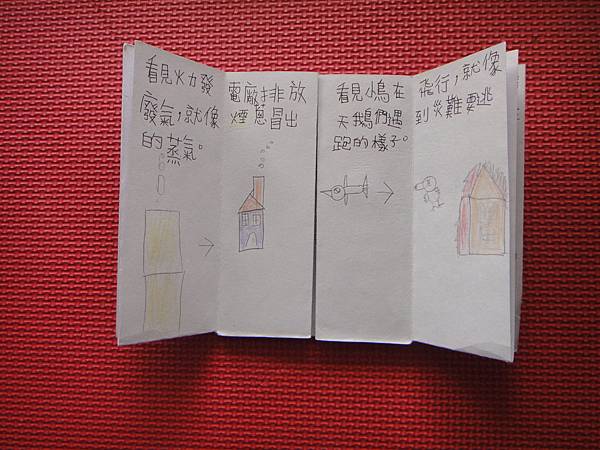 看見火力發電廠排放
廢氣,就像煙恩冒出
的蒸氣。
看見小鳥在飛行,就像
天鵝們遇到災難要逃
跑的樣子。